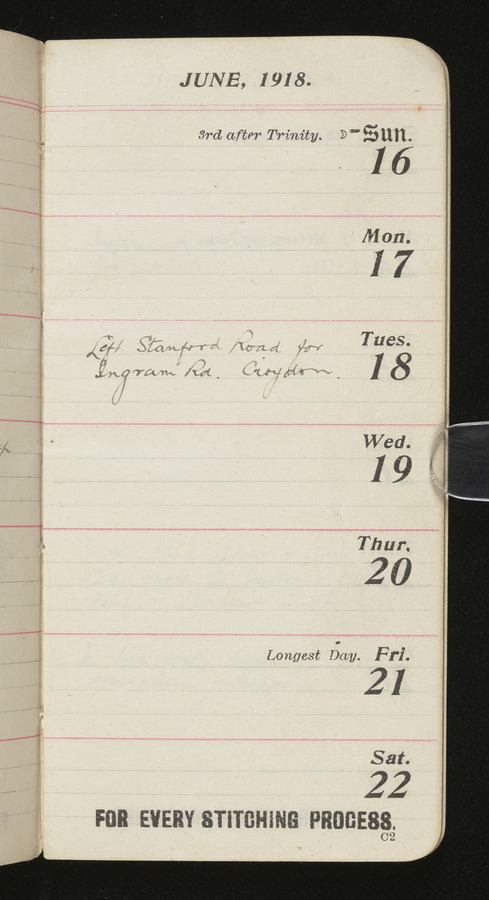 JUNE, 1918.
3rd after Trinity. ☽-Sun.
16
Mon.
17
Left Stanford Road for Tues.
Ingram Rd. Croydon. 18
Wed.
19
Thur.
20
Longest Day. Fri.
21
Sat.
22
FOR EVERY STITCHING PROCESS.
C2